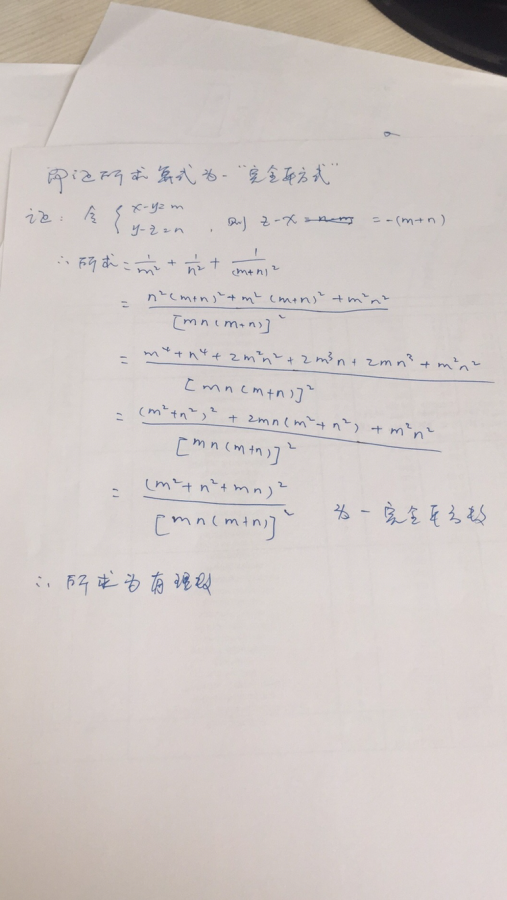 即证所求算式为一"完全平方式"
证：令 { x-y=m
y-z=n ，则 z-x = -(m+n)
∴ 所求 = 1/m² + 1/n² + 1/(m+n)²
= n²(m+n)² + m²(m+n)² + m²n² / [mn(m+n)]²
= m⁴+n⁴+2m²n²+2m³n+2mn³+m²n² / [mn(m+n)]²
= (m²+n²)² + 2mn(m²+n²) + m²n² / [mn(m+n)]²
= (m²+n²+mn)² / [mn(m+n)]² 为一完全平方数
∴ 所求为有理数